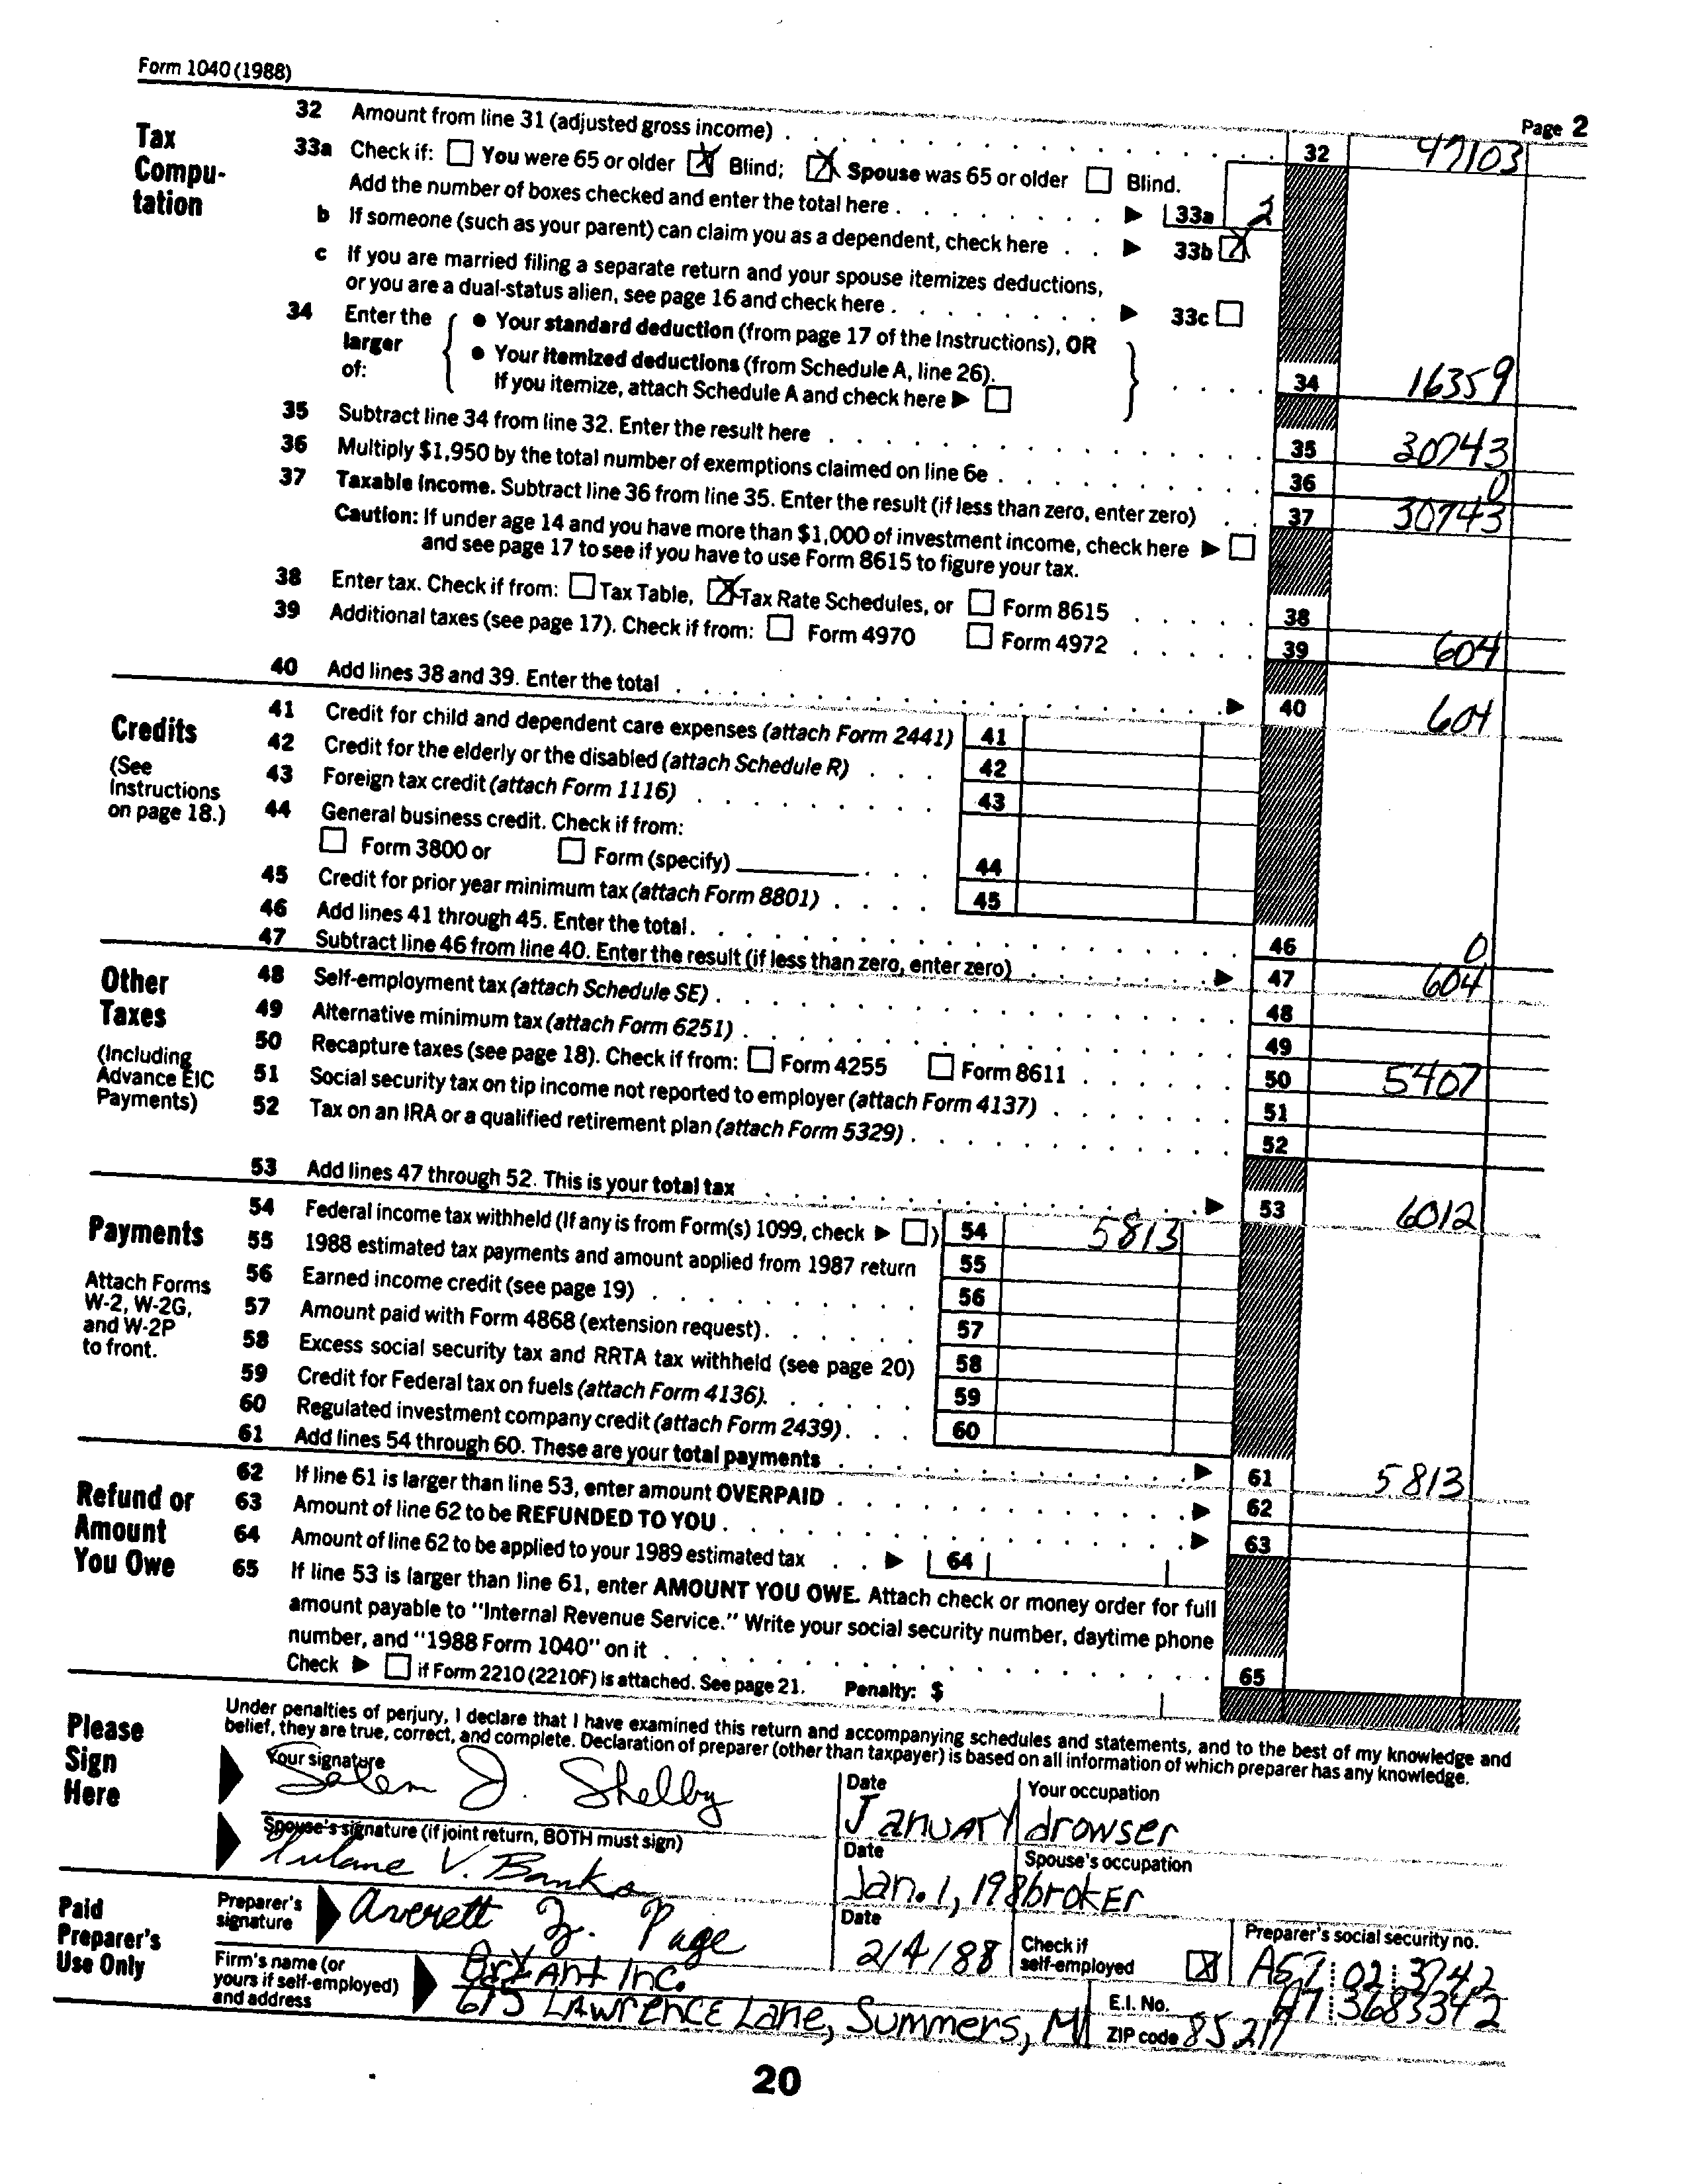 Form 1040 (1988)
Page 2
Tax Computation
32 Amount from line 31 (adjusted gross income) 32 47103
33a Check if: You were 65 or older Blind; Spouse was 65 or older Blind.
Add the number of boxes checked and enter the total here 33a 2
b If someone (such as your parent) can claim you as a dependent, check here 33b
c If you are married filing a separate return and your spouse itemizes deductions,
or you are a dual-status alien, see page 16 and check here 33c
34 Enter the larger of: Your standard deduction (from page 17 of the Instructions), OR
Your itemized deductions (from Schedule A, line 26).
If you itemize, attach Schedule A and check here 34 16359
35 Subtract line 34 from line 32. Enter the result here 35 30743
36 Multiply $1,950 by the total number of exemptions claimed on line 6e 36 0
37 Taxable income. Subtract line 36 from line 35. Enter the result (if less than zero, enter zero) 37 30743
Caution: If under age 14 and you have more than $1,000 of investment income, check here
and see page 17 to see if you have to use Form 8615 to figure your tax.
38 Enter tax. Check if from: Tax Table, Tax Rate Schedules, or Form 8615 38
39 Additional taxes (see page 17). Check if from: Form 4970 Form 4972 39 604
40 Add lines 38 and 39. Enter the total 40 604
Credits
(See Instructions on page 18.)
41 Credit for child and dependent care expenses (attach Form 2441) 41
42 Credit for the elderly or the disabled (attach Schedule R) 42
43 Foreign tax credit (attach Form 1116) 43
44 General business credit. Check if from:
Form 3800 or Form (specify) 44
45 Credit for prior year minimum tax (attach Form 8801) 45
46 Add lines 41 through 45. Enter the total. 46 0
47 Subtract line 46 from line 40. Enter the result (if less than zero, enter zero) 47 604
Other Taxes
(Including Advance EIC Payments)
48 Self-employment tax (attach Schedule SE) 48
49 Alternative minimum tax (attach Form 6251) 49
50 Recapture taxes (see page 18). Check if from: Form 4255 Form 8611 50 5407
51 Social security tax on tip income not reported to employer (attach Form 4137) 51
52 Tax on an IRA or a qualified retirement plan (attach Form 5329) 52
53 Add lines 47 through 52. This is your total tax 53 6012
Payments
Attach Forms W-2, W-2G, and W-2P to front.
54 Federal income tax withheld (If any is from Form(s) 1099, check ) 54 5813
55 1988 estimated tax payments and amount applied from 1987 return 55
56 Earned income credit (see page 19) 56
57 Amount paid with Form 4868 (extension request) 57
58 Excess social security tax and RRTA tax withheld (see page 20) 58
59 Credit for Federal tax on fuels (attach Form 4136). 59
60 Regulated investment company credit (attach Form 2439) 60
61 Add lines 54 through 60. These are your total payments 61 5813
Refund or Amount You Owe
62 If line 61 is larger than line 53, enter amount OVERPAID 62
63 Amount of line 62 to be REFUNDED TO YOU 63
64 Amount of line 62 to be applied to your 1989 estimated tax 64
65 If line 53 is larger than line 61, enter AMOUNT YOU OWE. Attach check or money order for full
amount payable to "Internal Revenue Service." Write your social security number, daytime phone
number, and "1988 Form 1040" on it 65
Check if Form 2210 (2210F) is attached. See page 21. Penalty: $
Please Sign Here
Under penalties of perjury, I declare that I have examined this return and accompanying schedules and statements, and to the best of my knowledge and
belief, they are true, correct, and complete. Declaration of preparer (other than taxpayer) is based on all information of which preparer has any knowledge.
Your signature Date Your occupation
Salem J. Shelby January drowser
Spouse's signature (if joint return, BOTH must sign) Date Spouse's occupation
Tulane V. Banks Jan. 1, 198 broker
Paid Preparer's Use Only
Preparer's signature Averett Z. Page Date 2/4/88 Check if self-employed X Preparer's social security no. A57 02 3742
Firm's name (or yours if self-employed) and address Bryant Inc. E.I. No. A7 3683342
675 Lawrence Lane, Summers, MI ZIP code 85217
20